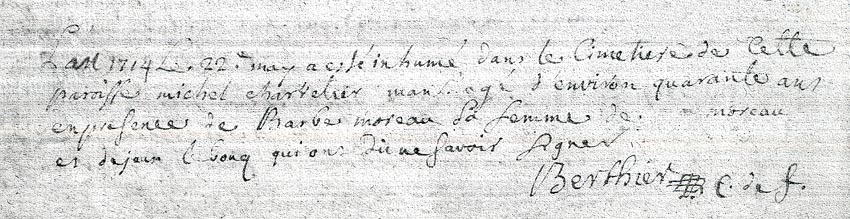 L'an 1714 Le 22e may a esté inhumé dans le Cimetiere de Cette
paroisse michel agé d'environ quarante ans
en presence de Barbe moreau Sa femme de moreau
et de jean le bouq qui ont dit ne Savoir Signer
Berthier C. de f.